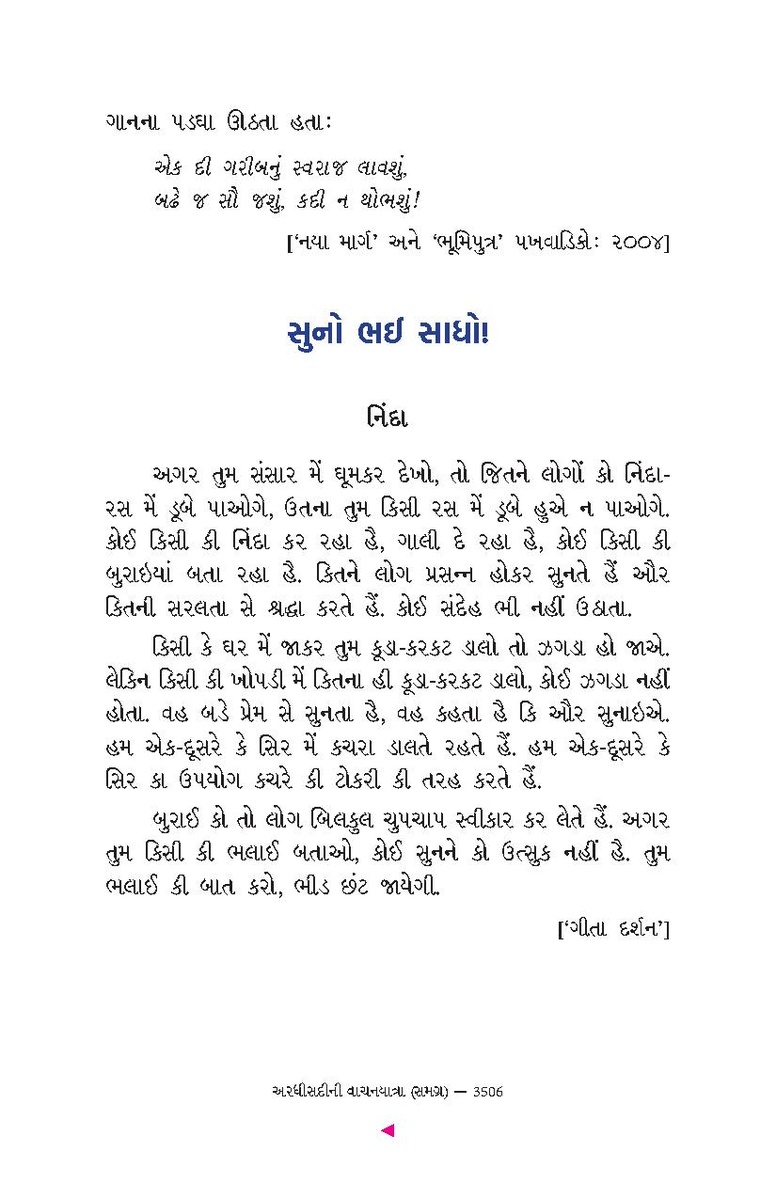 ગાનના પડઘા ઊઠતા હતાઃ
એક દી ગરીબનું સ્વરાજ લાવશું,
બઢે જ સૌ જશું, કદી ન થોભશું!
[‘નયા માર્ગ’ અને ‘ભૂમિપુત્ર’ પખવાડિકોઃ ૨૦૦૪]
સુનો ભઈ સાધો!
નિંદા
અગર તુમ સંસાર મેં ઘૂમકર દેખો, તો જિતને લોગોં કો નિંદા-
રસ મેં ડૂબે પાઓગે, ઉતના તુમ કિસી રસ મેં ડૂબે હુએ ન પાઓગે.
કોઈ કિસી કી નિંદા કર રહા હૈ, ગાલી દે રહા હૈ, કોઈ કિસી કી
બુરાઇયાં બતા રહા હૈ. કિતને લોગ પ્રસન્ન હોકર સુનતે હૈં ઔર
કિતની સરલતા સે શ્રદ્ધા કરતે હૈં. કોઈ સંદેહ ભી નહીં ઉઠાતા.
કિસી કે ઘર મેં જાકર તુમ કૂડા-કરકટ ડાલો તો ઝગડા હો જાએ.
લેકિન કિસી કી ખોપડી મેં કિતના હી કૂડા-કરકટ ડાલો, કોઈ ઝગડા નહીં
હોતા. વહ બડે પ્રેમ સે સુનતા હૈ, વહ કહતા હૈ કિ ઔર સુનાઇએ.
હમ એક-દૂસરે કે સિર મેં કચરા ડાલતે રહતે હૈં. હમ એક-દૂસરે કે
સિર કા ઉપયોગ કચરે કી ટોકરી કી તરહ કરતે હૈં.
બુરાઈ કો તો લોગ બિલકુલ ચુપચાપ સ્વીકાર કર લેતે હૈં. અગર
તુમ કિસી કી ભલાઈ બતાઓ, કોઈ સુનને કો ઉત્સુક નહીં હૈ. તુમ
ભલાઈ કી બાત કરો, ભીડ છંટ જાયેગી.
[‘ગીતા દર્શન’]
અરધીસદીની વાચનયાત્રા (સમગ્ર) — 3506